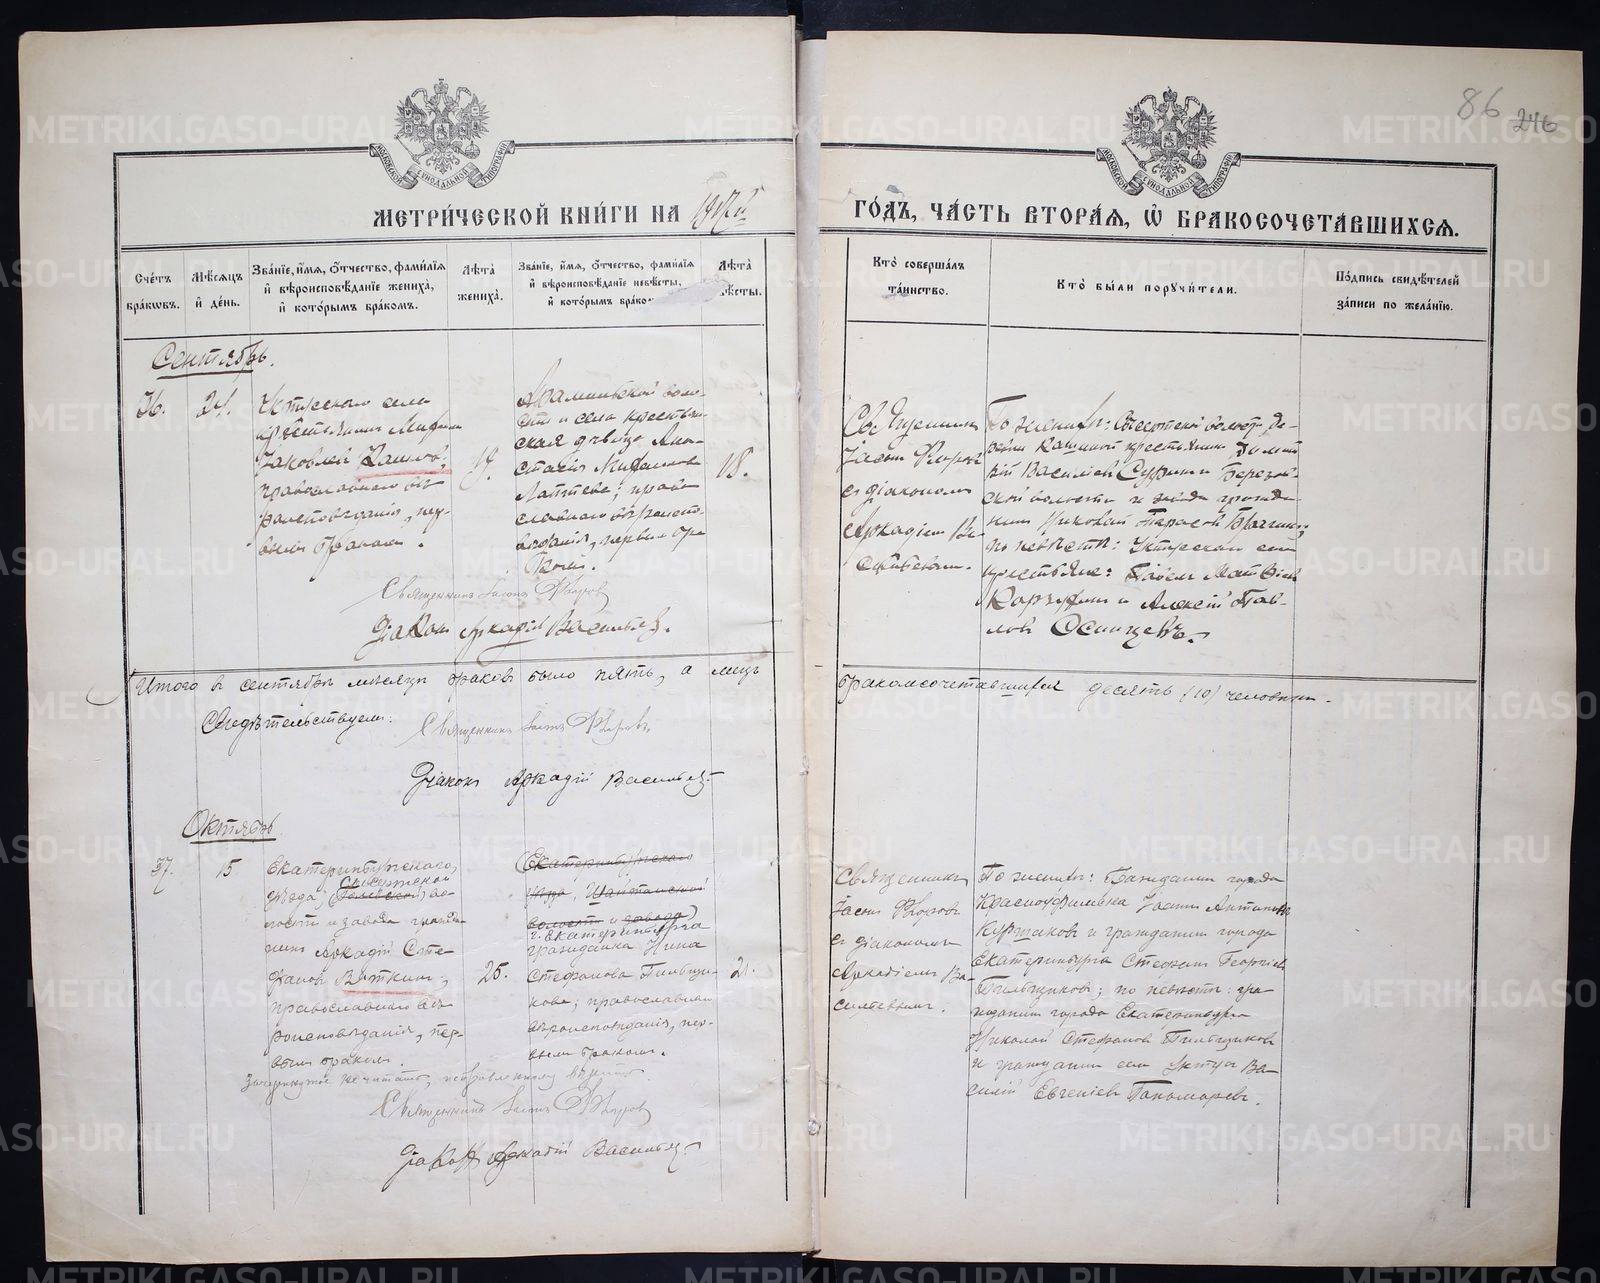 86 246
МОСКОВСКОЙ СѴНОДАЛЬНОЙ ТИПОГРАФІИ
МОСКОВСКОЙ СѴНОДАЛЬНОЙ ТИПОГРАФІИ
МЕТРИ́ЧЕСКОЙ КНИ́ГИ НА 1917й
ГО́ДЪ, ЧА́СТЬ ВТОРА́Я, Ѡ҆ БРАКОСОЧЕТА́ВШИХСЯ.
Сче́тъ бра́кѡвъ.
Мѣ́сяцъ и҆ де́нь.
Зва́нїе, и҆́мя, ѻ҆́тчество, фами́лїя
и҆ вѣроисповѣ́данїе жениха̀,
и҆ кото́рымъ бра́комъ.
Лѣта̀ жениха̀.
Зва́нїе, и҆́мя, ѻ҆́тчество, фами́лїя
и҆ вѣроисповѣ́данїе невѣ́сты,
и҆ кото́рымъ брако
Лѣта̀ ѣ́сты.
Кто̀ соверша́лъ
та́инство.
Кто̀ бы́ли порꙋчи́тели.
По́дпись свидѣ́телей
за́писи по жела́нїю.
Сентябрь.
36.
24.
Уктусскаго села
крестьянинъ
Яковлевъ
православнаго вѣ-
роисповѣданія, пер-
вымъ бракомъ.
19.
Арамильской воло-
сти и села крестьян-
ская дѣвица Ана-
стасія
Лаптева; право-
славнаго вѣроиспо-
вѣданія, первымъ бра-
комъ.
18.
Священникъ
Іасонъ Флоровъ
съ діакономъ
Аркадіемъ Ва-
сильевымъ.
По женихѣ: Сысертской волости де-
ревни Кашиной крестьянинъ
Васильевъ и Березов-
ской волости и завода гражда-
нинъ Николай Тарасовъ
по невѣстѣ: Уктусскаго села
крестьяне: Павелъ Матвѣевъ
и Алексѣй Пав-
ловъ Осинцевъ.
Священникъ Іасонъ Флоровъ
Діаконъ Аркадій Васильевъ.
Итого въ сентябрѣ мѣсяцѣ браковъ было пять, а лицъ
бракомсочетавшихся десять (10) человѣкъ.
Свидѣтельствуемъ:
Священникъ Іасонъ Флоровъ
Діаконъ Аркадій Васильевъ
Октябрь
37.
15
Екатеринбургскаго
уѣзда, Сысертской
волости и завода гражда-
нинъ Аркадій Сте-
фановъ Вяткинъ;
православнаго вѣ-
роисповѣданія, пер-
вымъ бракомъ.
25.
(Екатеринбургскаго
уѣзда, Шайтанской
волости и завода)
г. Екатеринбурга
гражданка Нина
Стефанова Пильщи-
кова; православнаго
вѣроисповѣданія, пер-
вымъ бракомъ.
21.
Священникъ
Іасонъ Флоровъ
съ діакономъ
Аркадіемъ Ва-
сильевымъ.
По женихѣ: Гражданинъ города
Красноуфимска Іоаннъ Антиповъ
Куршаковъ и гражданинъ города
Екатеринбурга Стефанъ Георгіевъ
Пильщиковъ; по невѣстѣ: гра-
жданинъ города Екатеринбурга
Николай Стефановъ Пильщиковъ
и гражданинъ села Уктуса Ва-
силій Евгеніевъ Пономаревъ.
Зачеркнутое не читать, исправленному вѣрить.
Священникъ Іасонъ Флоровъ
Діаконъ Аркадій Васильевъ
METRIKI.GASO-URAL.RU